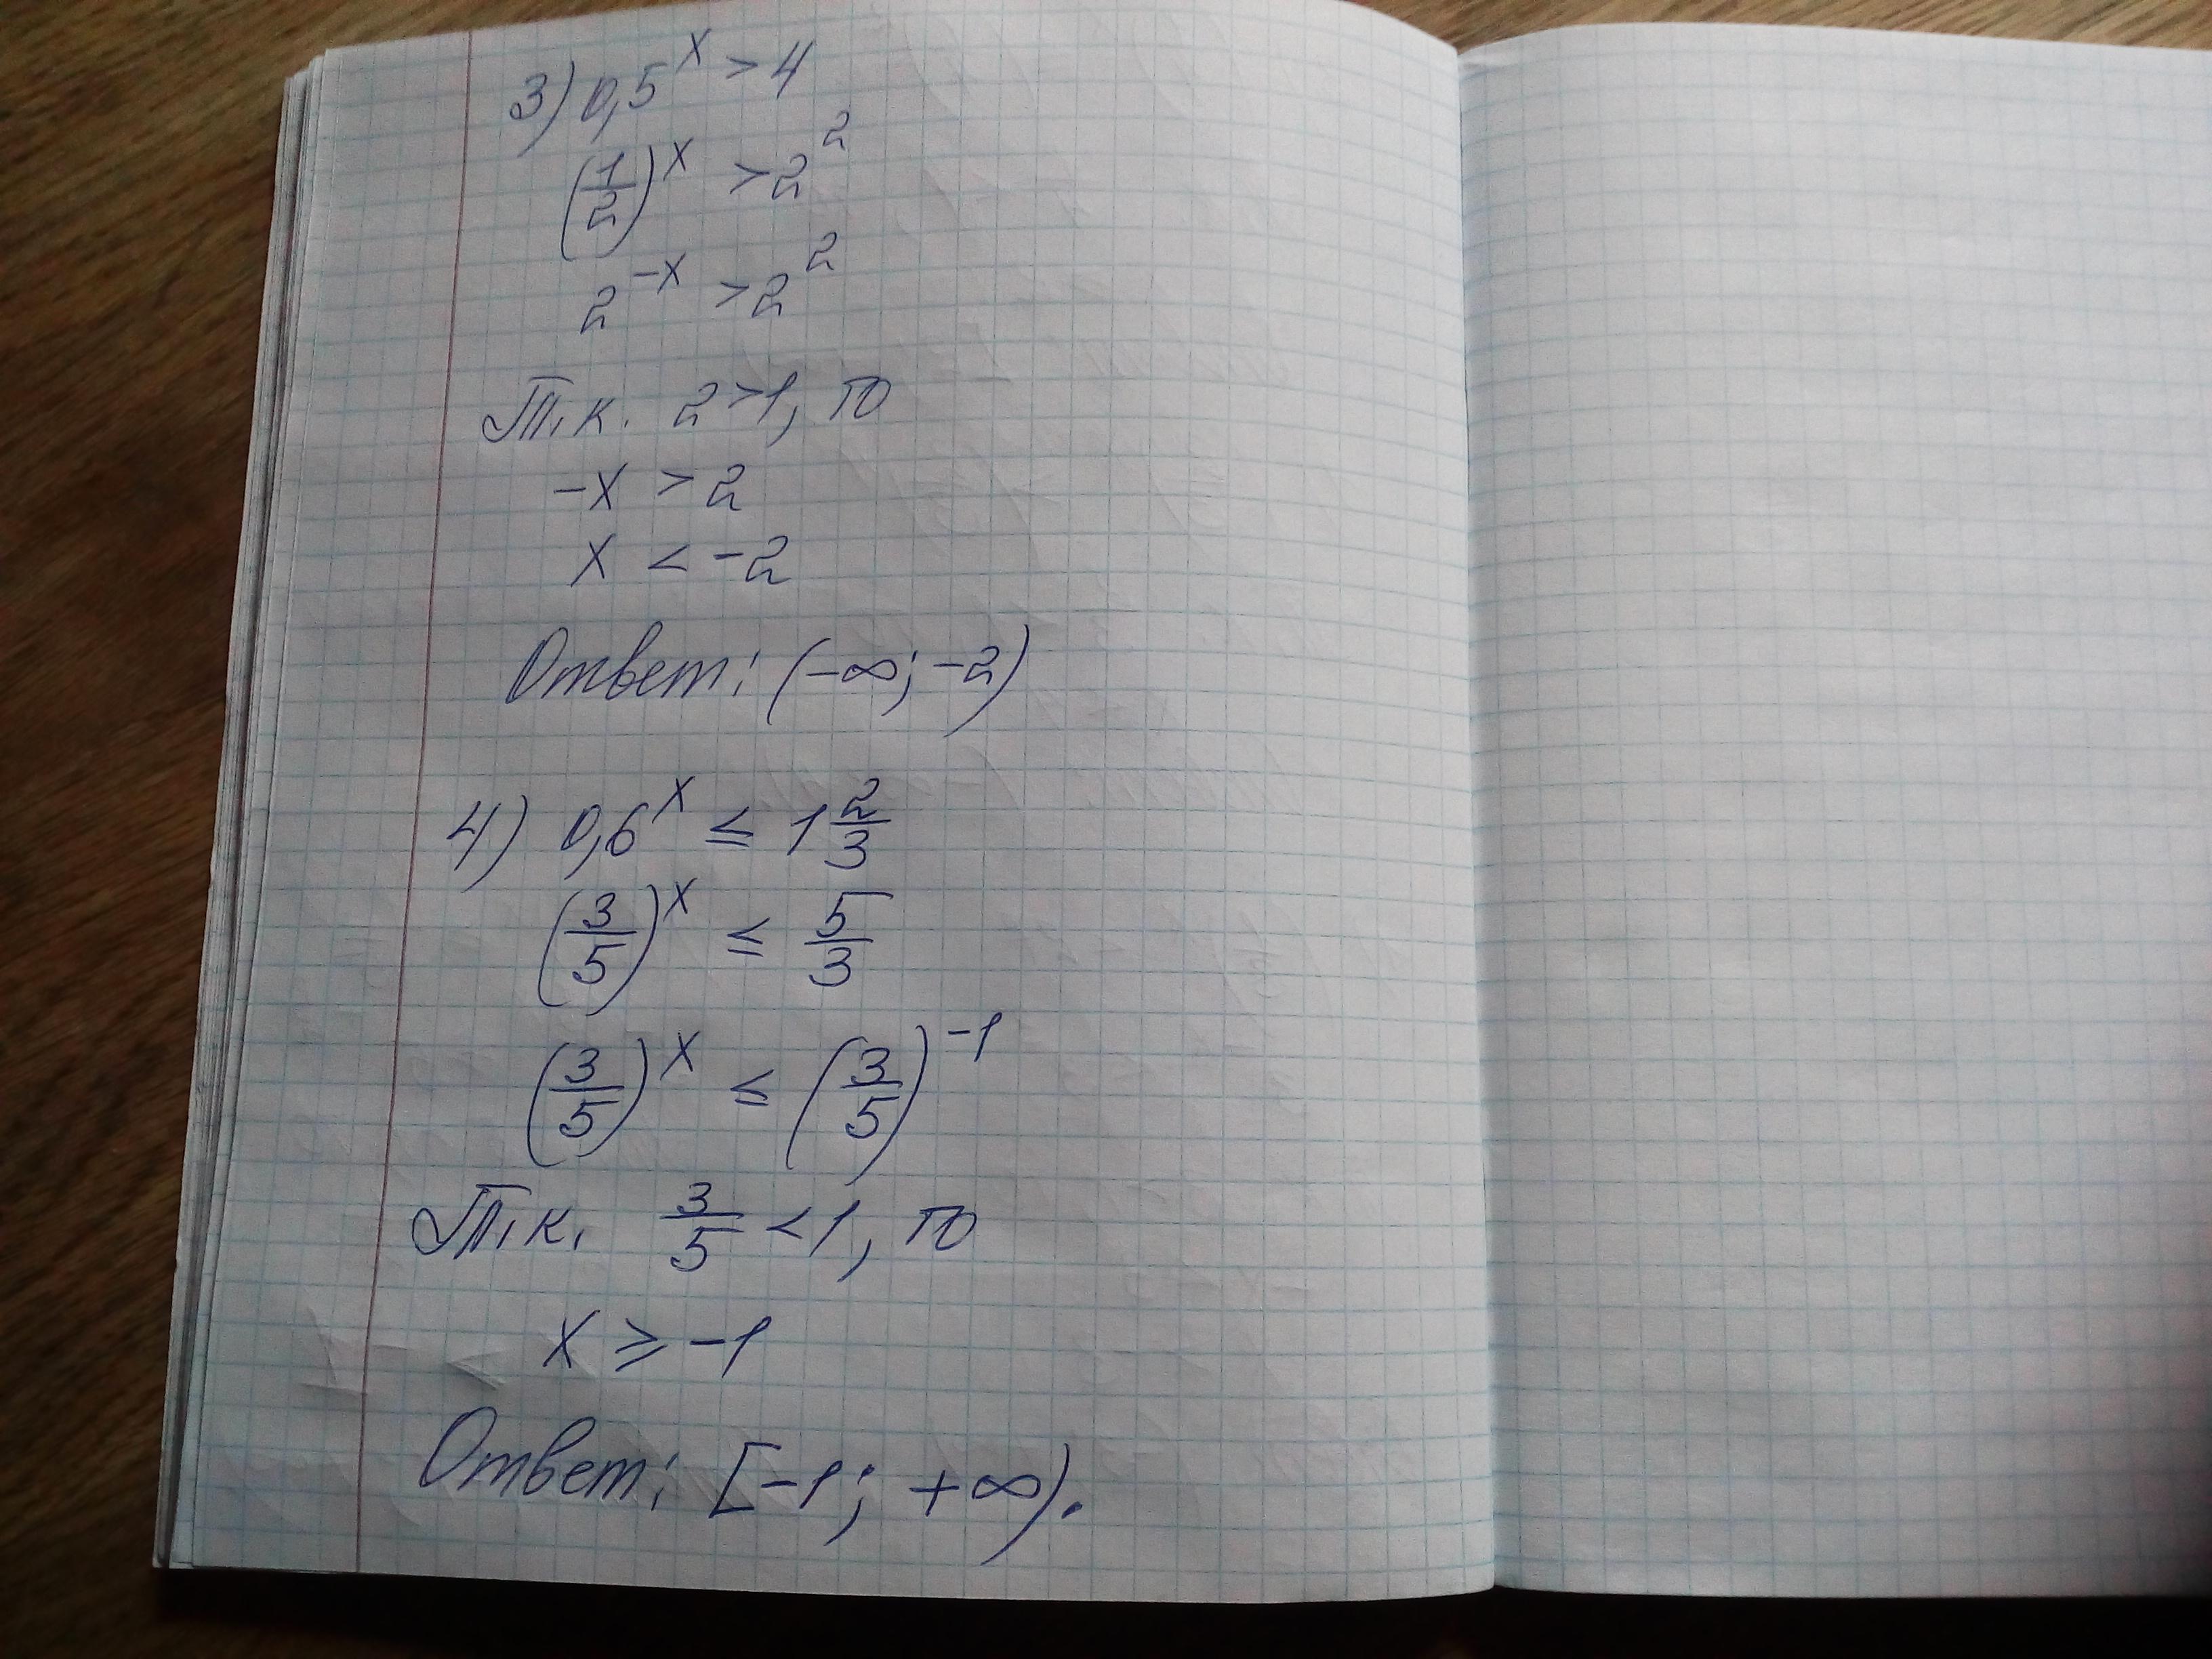 3) 0,5^x > 4
(1/2)^x > 2^2
2^-x > 2^2
Т.к. 2>1, то
-x > 2
x < -2
Ответ: (-∞; -2)
4) 0,6^x ≤ 1 2/3
(3/5)^x ≤ 5/3
(3/5)^x ≤ (3/5)^-1
Т.к. 3/5 < 1, то
x ⩾ -1
Ответ: [-1; +∞).